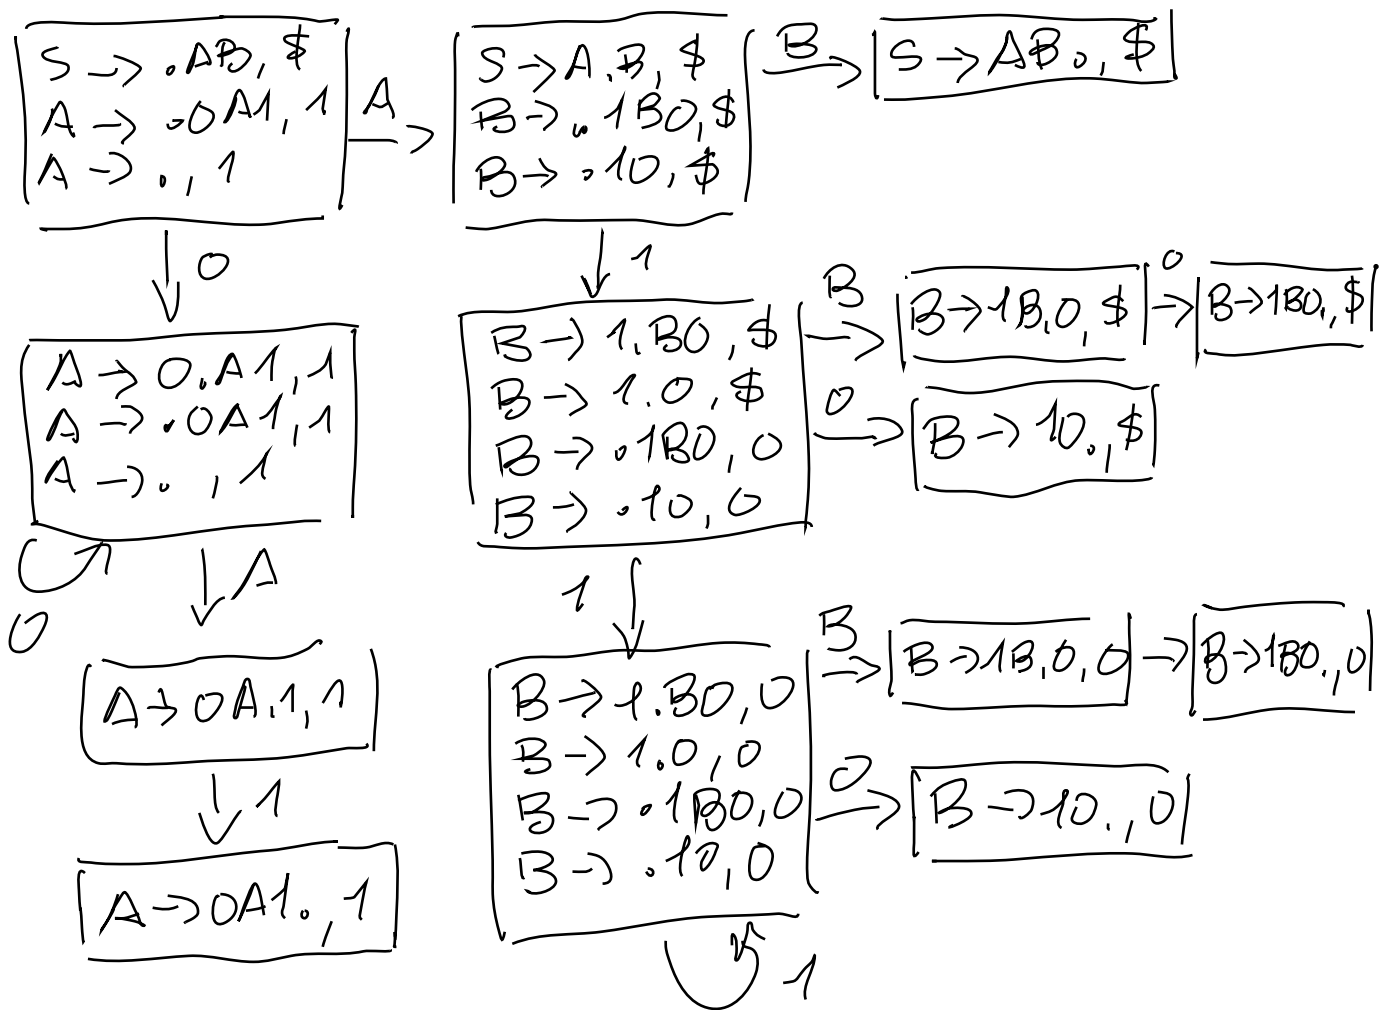 S → .AB, $
A → .0A1, 1
A → ., 1
A
S → A.B, $
B → .1B0, $
B → .10, $
B
S → AB., $
0
1
A → 0.A1, 1
A → .0A1, 1
A → ., 1
0
A
B → 1.B0, $
B → 1.0, $
B → .1B0, 0
B → .10, 0
B
B → 1B.0, $
0
B → 1B0., $
0
B → 10., $
1
A → 0A.1, 1
1
A → 0A1., 1
B → 1.B0, 0
B → 1.0, 0
B → .1B0, 0
B → .10, 0
B
B → 1B.0, 0
B → 1B0., 0
0
B → 10., 0
1